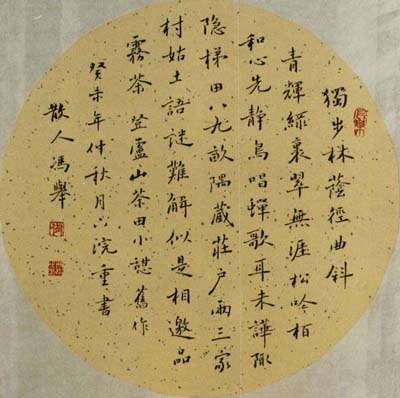 獨步林蔭徑曲斜
青輝綠裹翠無涯松吟柏
和心先靜鳥唱蟬歌耳未譁陬
隐梯田八九畝隅藏莊户兩三家
村姑土語謎難解似是相邀品
霧茶 登廬山茶田小憩舊作
癸未年仲秋月下浣重書
散人馮舉